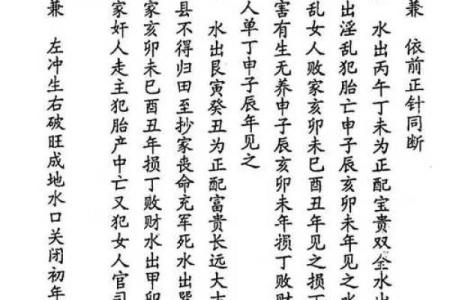 兼 依前正针同断
水出丙午丁未为正配宝贵双全水出
出淫乱犯胎亡申子辰亥卯未年见之水
乱女人败家亥卯未巳酉丑年见之损丁
害有生无养申子辰亥卯未年损丁败财
人单丁申子辰年见之
水出艮寅癸丑为正配富贵长远大
县不得归田至抄家丧命充军死水出巽
家亥卯未巳酉丑年损丁败财水出甲卯
家奸人走主犯胎产中亡又犯女人官司
兼 左冲生右破旺成地水口关闭初年